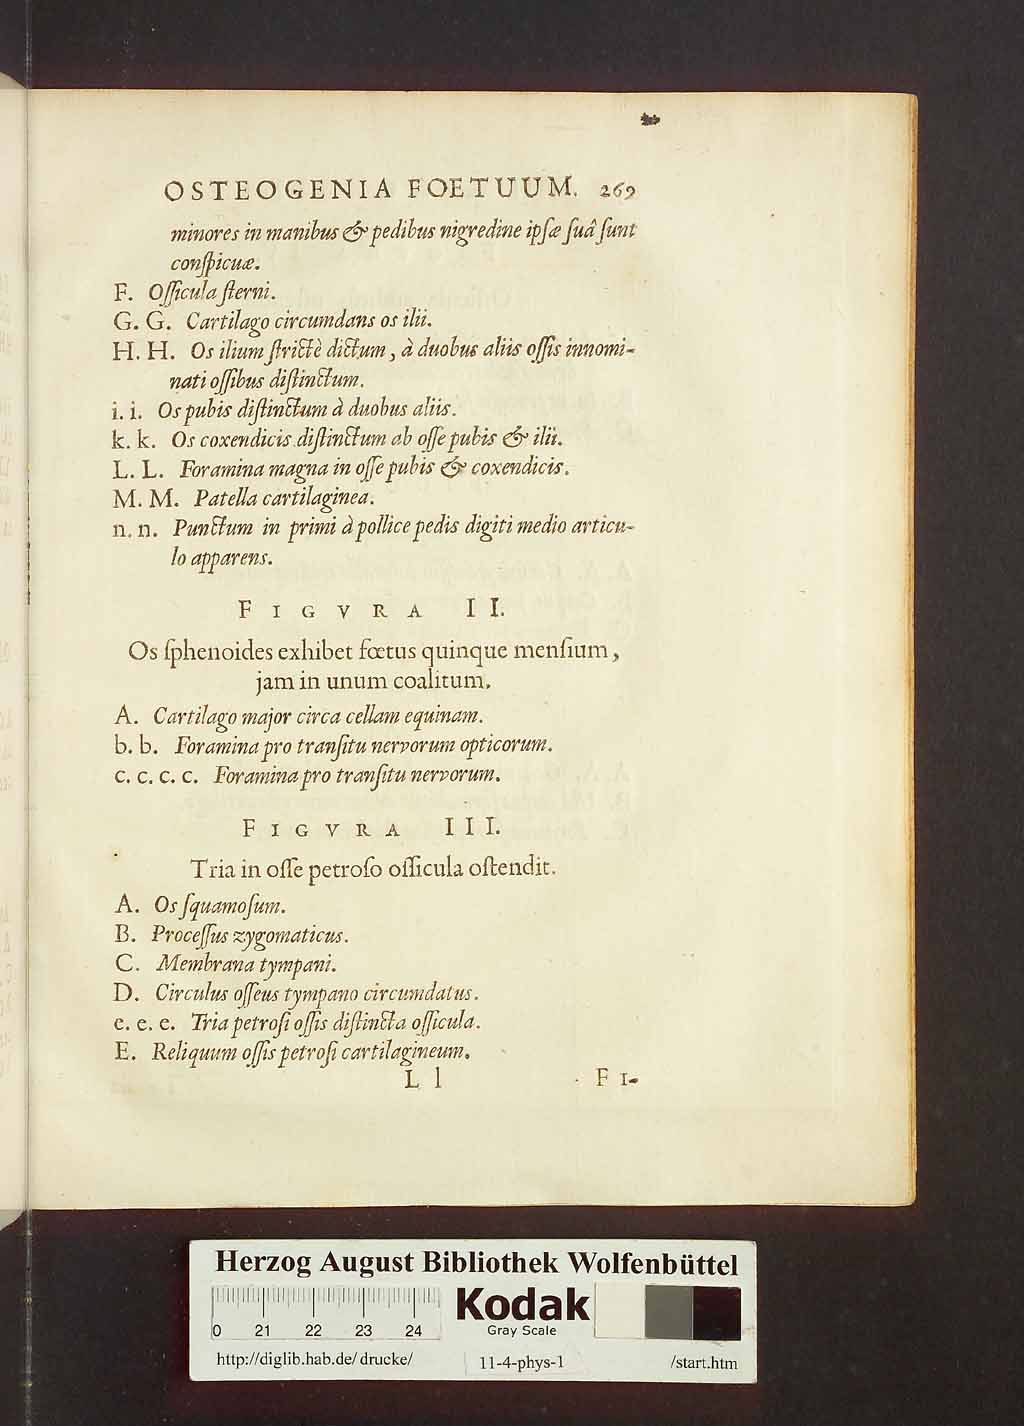 OSTEOGENIA FOETUUM. 269
minores in manibus & pedibus nigredine ipſæ ſuâ ſunt
conſpicuæ.
F. Oſſicula ſterni.
G. G. Cartilago circumdans os ilii.
H. H. Os ilium ſtrictè dictum, à duobus aliis oſſis innomi-
nati oſſibus diſtinctum.
i. i. Os pubis diſtinctum à duobus aliis.
k. k. Os coxendicis diſtinctum ab oſſe pubis & ilii.
L. L. Foramina magna in oſſe pubis & coxendicis.
M. M. Patella cartilaginea.
n. n. Punctum in primi à pollice pedis digiti medio articu-
lo apparens.
FIGVRA II.
Os ſphenoides exhibet fœtus quinque menſium,
jam in unum coalitum.
A. Cartilago major circa cellam equinam.
b. b. Foramina pro tranſitu nervorum opticorum.
c. c. c. c. Foramina pro tranſitu nervorum.
FIGVRA III.
Tria in oſſe petroſo oſſicula oſtendit.
A. Os ſquamoſum.
B. Proceſſus zygomaticus.
C. Membrana tympani.
D. Circulus oſſeus tympano circumdatus.
e. e. e. Tria petroſi oſſis diſtincta oſſicula.
E. Reliquum oſſis petroſi cartilagineum.
L l FI-
Herzog August Bibliothek Wolfenbüttel
0 21 22 23 24
Kodak
Gray Scale
http://diglib.hab.de/drucke/ 11-4-phys-1 /start.htm